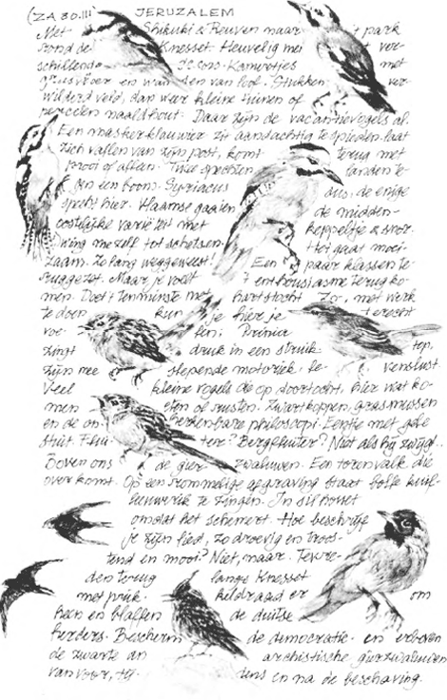 (ZA 30.III) JERUZALEM
Met Shikuki & Reuven naar 't park
rond de Knesset. Heuvelig met ver-
schillende decors. Kamertjes met
grasvloer en wanden van loof. Stukken ver-
wilderd veld, dan weer kleine tuinen of
percelen naaldhout. Daar zijn de vacantievogels al.
Een maskerklauwier zit aandachtig te spieden, laat
zich vallen van zijn post, komt terug met
prooi of alleen. Twee spechten landen te-
gen een boom. Syriacus dus, de enige
specht hier. Vlaamse gaaien de midden-
oostelijke variëteit met keppeltje & snor.
Dwing mezelf tot schetsen. Het gaat moei-
zaam. Zo lang weggeweest! Een paar klassen te-
ruggezet. Maar je voelt 't enthousiasme terugko-
men. Doet tenminste met hartstocht zo, met werk
te doen kun je hier je terecht
voe- len. Prinia
zingt druk in een struik top,
zijn mee slepende motoriek, le- venslust
Veel kleine vogels de op doortocht, hier wat ko-
men eten of rusten. Zwartkoppen, grasmussen
en de on- herkenbare philoscopi. Eentje met gele
stuit. Flui- ter? Bergfluiter? Niet als hij zwijgt..
Boven ons de gier- zwaluwen. Een torenvalk die
over komt. Op een rommelige afgraving staat kuif-
leeuwerik te zingen. In silhouet
omdat het schemert. Hoe beschrijf
je zijn lied, zo droevig en troos-
tend en mooi? Niet, maar. Tevre-
den terug lange Knesset
met prik- keldraad er om
heen en blaffen de duitse
herders. Bescherm de democratie. en erboven
de zwarte an archistische gierzwaluwen
van voor, tij- dens en na de beschaving.